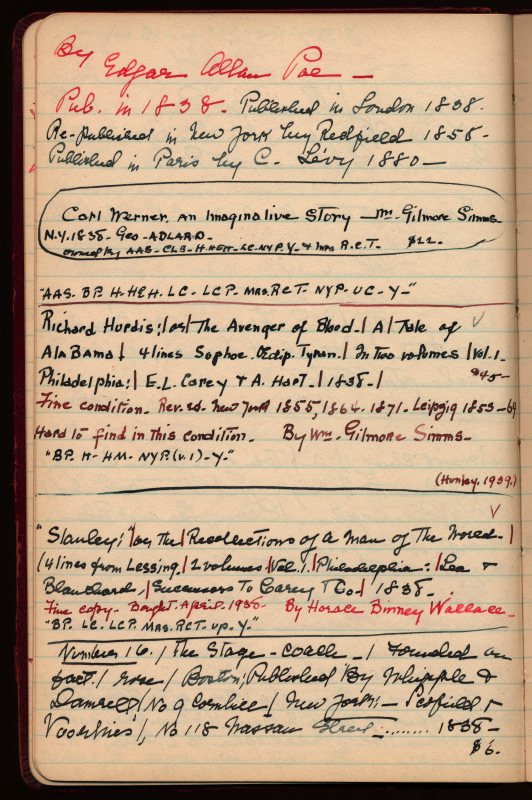 By
Edgar Allan Poe —
Pub. in 1838- Published in London 1838.
Re-published in New York by Redfield 1856-
Published in Paris by C. Lévy 1880—
Carl Werner, an Imaginative Story — Wm. Gilmore Simms
N.Y. 1838- Geo-ADLARD-
owned by AAS-CLS-H-HEH-LC-NYP.Y- & Mrs R.C.T. $22.
"AAS. BP. H-HEH. LC- LCP- MRS. RCT- NYP- UC- Y-"
Richard Hurdis; | or | The Avenger of Blood- | A | Tale of
Alabama | 4 lines Sophoc. Oedip. Tyran. | In Two volumes | Vol. 1.
Philadelphia: | E.L. Carey & A. Hart- | 1838- | $45-
Fine condition. Rev. ed. New York 1855, 1864- 1871- Leipzig 1853-64
Hard to find in this condition- By Wm. Gilmore Simms-
"BP. H- HM- NYP. (v. 1)- Y-"
(Huntley. 1939.)
"Stanley; | or The | Recollections of a Man of The World- |
(4 lines from Lessing, | 2 volumes | Vol. 1. | Philadelphia: | Lea &
Blanchard, | Successors To Carey & Co. | 1838-
Fine copy- Bought. April. 1936- By Horace Binney Wallace-
"BP. LC. LCP. MRS. RCT- UP. Y-"
Number 16. | The Stage-Coach- | Founded on
fact. | Rose / Boston, Published By Whipple &
Damrell / No 9 Cornhill / New York: -
Voorhies' /, No 118 Nassau Street - ....... 1838-
$6.